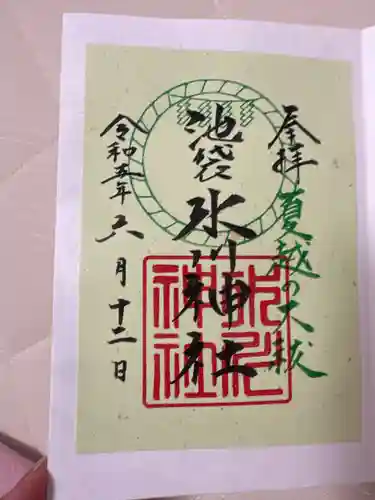 奉拝
夏越の大祓
池袋氷川神社
氷川神社
令和五年六月十二日